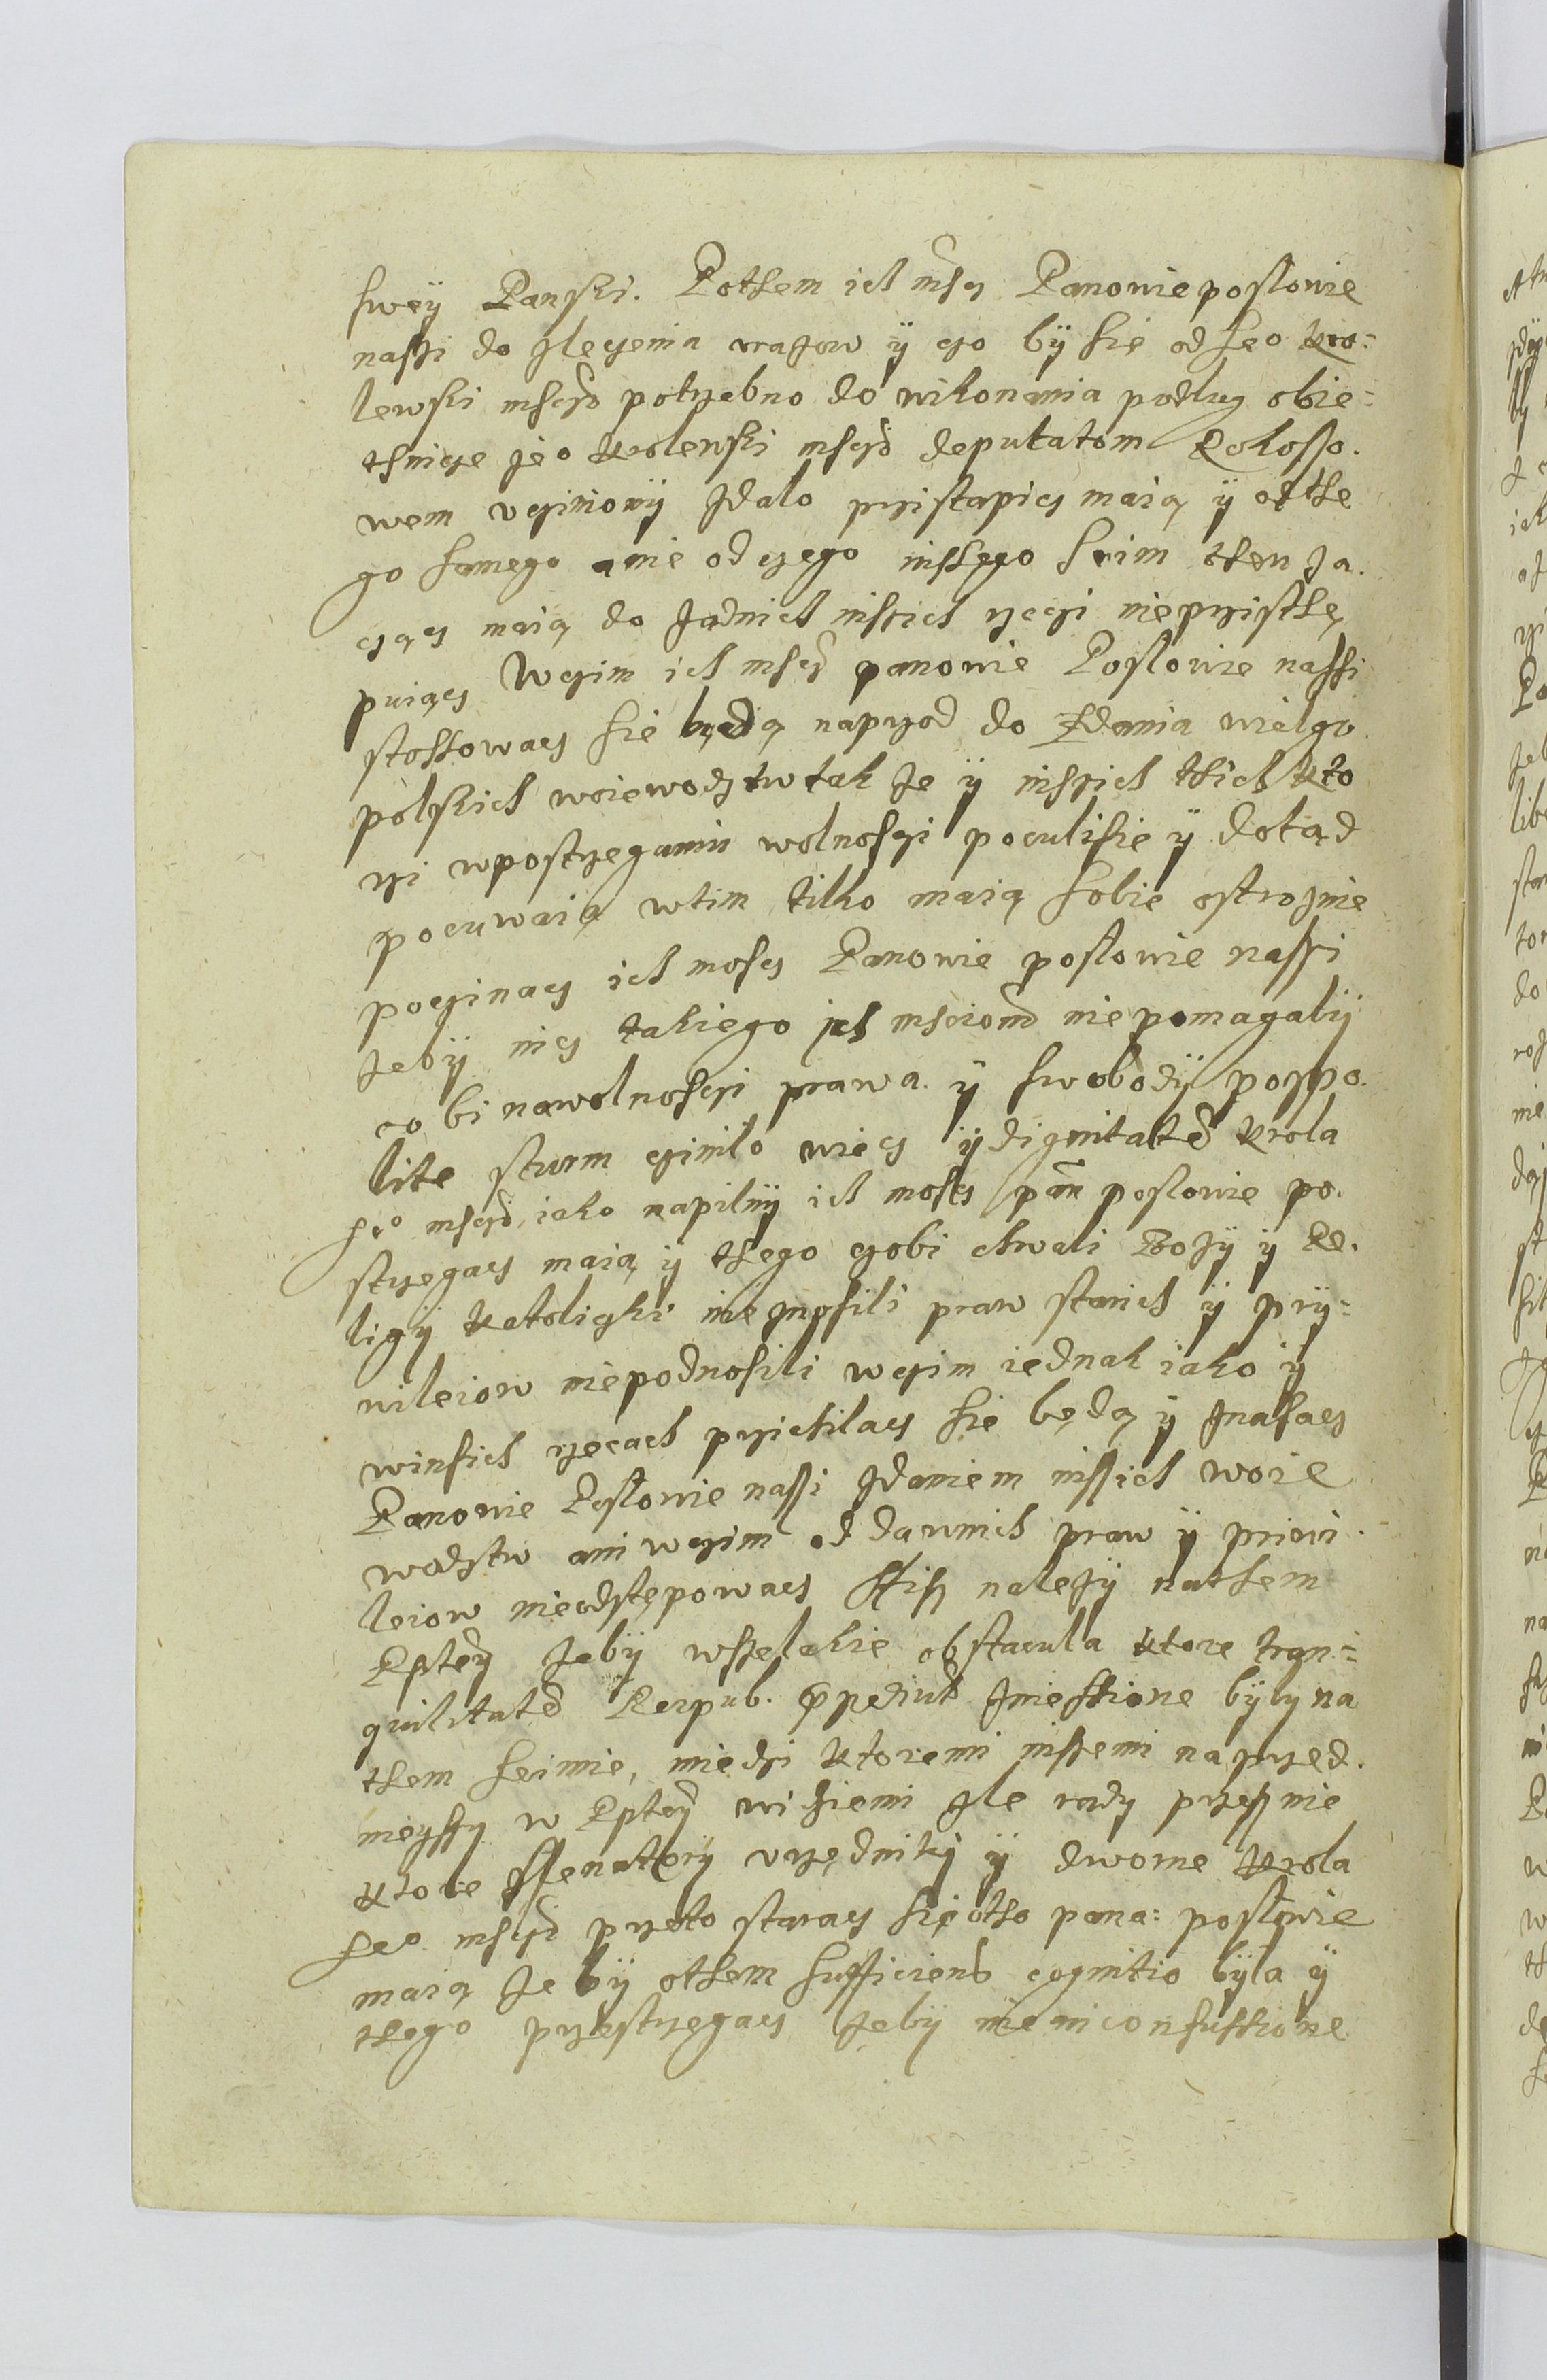 swey Panski. Pothem ich mscz Panowie poslowie
naszi do zleczenia urazow ÿ czo bÿ sie od Jeo kro=
lewski msczi potrzebno do wikonania podlug obie=
thnicze Jeo krolewski msczi deputatom Rokosso.
wem uczinionÿ zdalo przistapicz maią ÿ od the
go samego a nie od czego inszego seim then za.
cząc maią do zadnich inszich rzeczi nieprzisthę
puiącz Wczim ich msczi panowie Poslowie nasszi
stossowacz sie będą naprzod do zdania wielgo
polskich woiewodztw tak ze ÿ inszich thich kto
rzi wpostrzeganiu wolnosczi poculisie ÿ dotąd
pocuwaią wtim tilko maią sobie ostroznie
poczinacz ich moscz Panowie poslowie naszi
zebÿ nicz takiego ich msciom nie pomagalÿ
co bi nawolnosczi prawa ÿ swobodÿ pospo.
lite sturm czinilo wiecz ÿ dignitatem krola
Jeo msczi, iako napilnÿ ich moscz pan poslowie po.
strzegacz maią ÿ thego czobi chwali Bozÿ ÿ Re.
ligÿ katoliczki nie znosili praw starich ÿ prÿ=
wileiow niepodnosili wczim iednak iako ÿ
winsich rzecach przichilacz sie będą ÿ znasacz
Panowie Poslowie naszi zdaniem inszich woie
wodstw ani wczim od dawnich praw ÿ priwi.
leiow nieodstępowacz Hisz nalezÿ nathem
Rptey zebÿ wszelakie obstacula ktore tran=
quilitatem Reipub. impediunt zniessione bÿly na
them seimie, miedzi ktoremi inszemi naprzed.
nieyszy w Rptey widziemi zle rady przesznie
ktore ssenatorÿ urzędniky ÿ dworne krola
Jeo msczi przeto staracz się otho pana: poslowie
maią ze bÿ othem sufficiens cognitio bÿla ÿ
thego przestrzegacz zebÿ nie in confussione